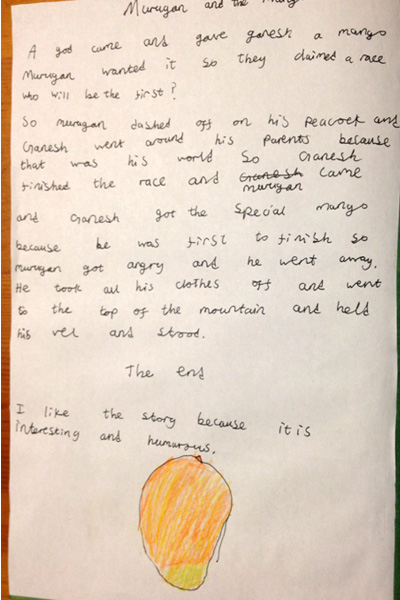 Murugan and the Mang
A god came and gave ganesh a mango
Murugan wanted it so they claimed a race
who will be the first?
So murugan dashed off on his Peacock and
Ganesh went around his parents because
that was his world So Ganesh
finished the race and Ganesh came
murugan
and Ganesh got the special mango
because he was first to finish so
murugan got angry and he went away.
He took all his clothes off and went
to the top of the mountain and held
his vel and stood.
The end
I like the story because it is
interesting and humurous.